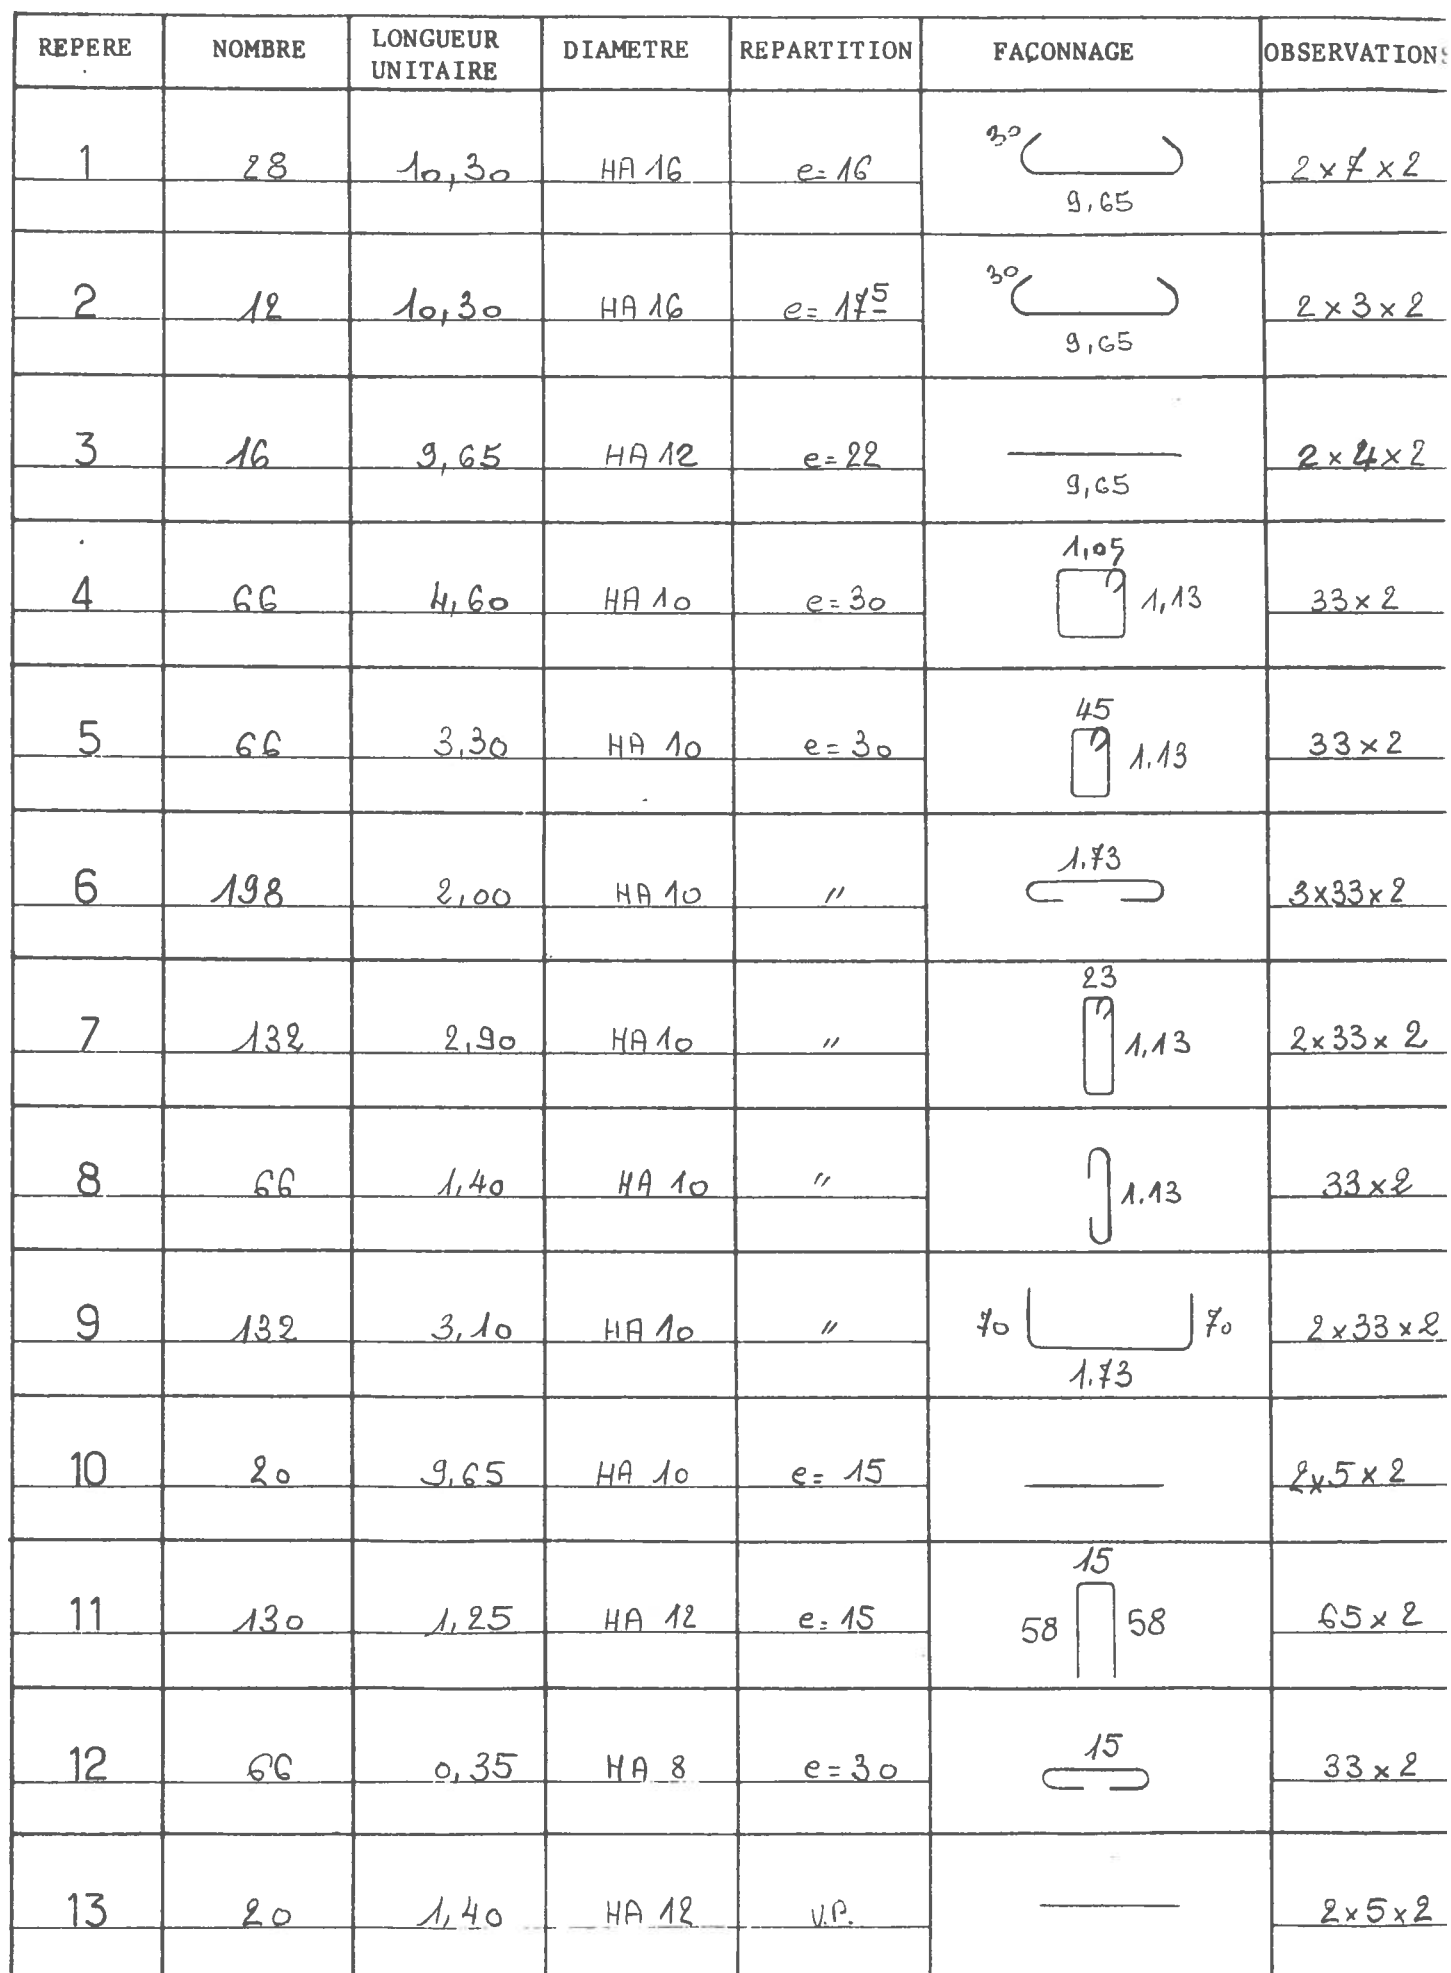 REPERE NOMBRE LONGUEUR UNITAIRE DIAMETRE REPARTITION FAÇONNAGE OBSERVATIONS
1 28 10,30 HA 16 e=16 30 9,65 2x7x2
2 12 10,30 HA 16 e=17⁵ 30 9,65 2x3x2
3 16 9,65 HA 12 e=22 9,65 2x4x2
4 66 4,60 HA 10 e=30 1,05 1,13 33x2
5 66 3,30 HA 10 e=30 45 1.13 33x2
6 198 2,00 HA 10 〃 1.73 3x33x2
7 132 2,90 HA 10 〃 23 1,13 2x33x2
8 66 1,40 HA 10 〃 1.13 33x2
9 132 3,10 HA 10 〃 70 70 1.73 2x33x2
10 20 9,65 HA 10 e=15 2x5x2
11 130 1,25 HA 12 e=15 15 58 58 65x2
12 66 0,35 HA 8 e=30 15 33x2
13 20 1,40 HA 12 V.P. 2x5x2